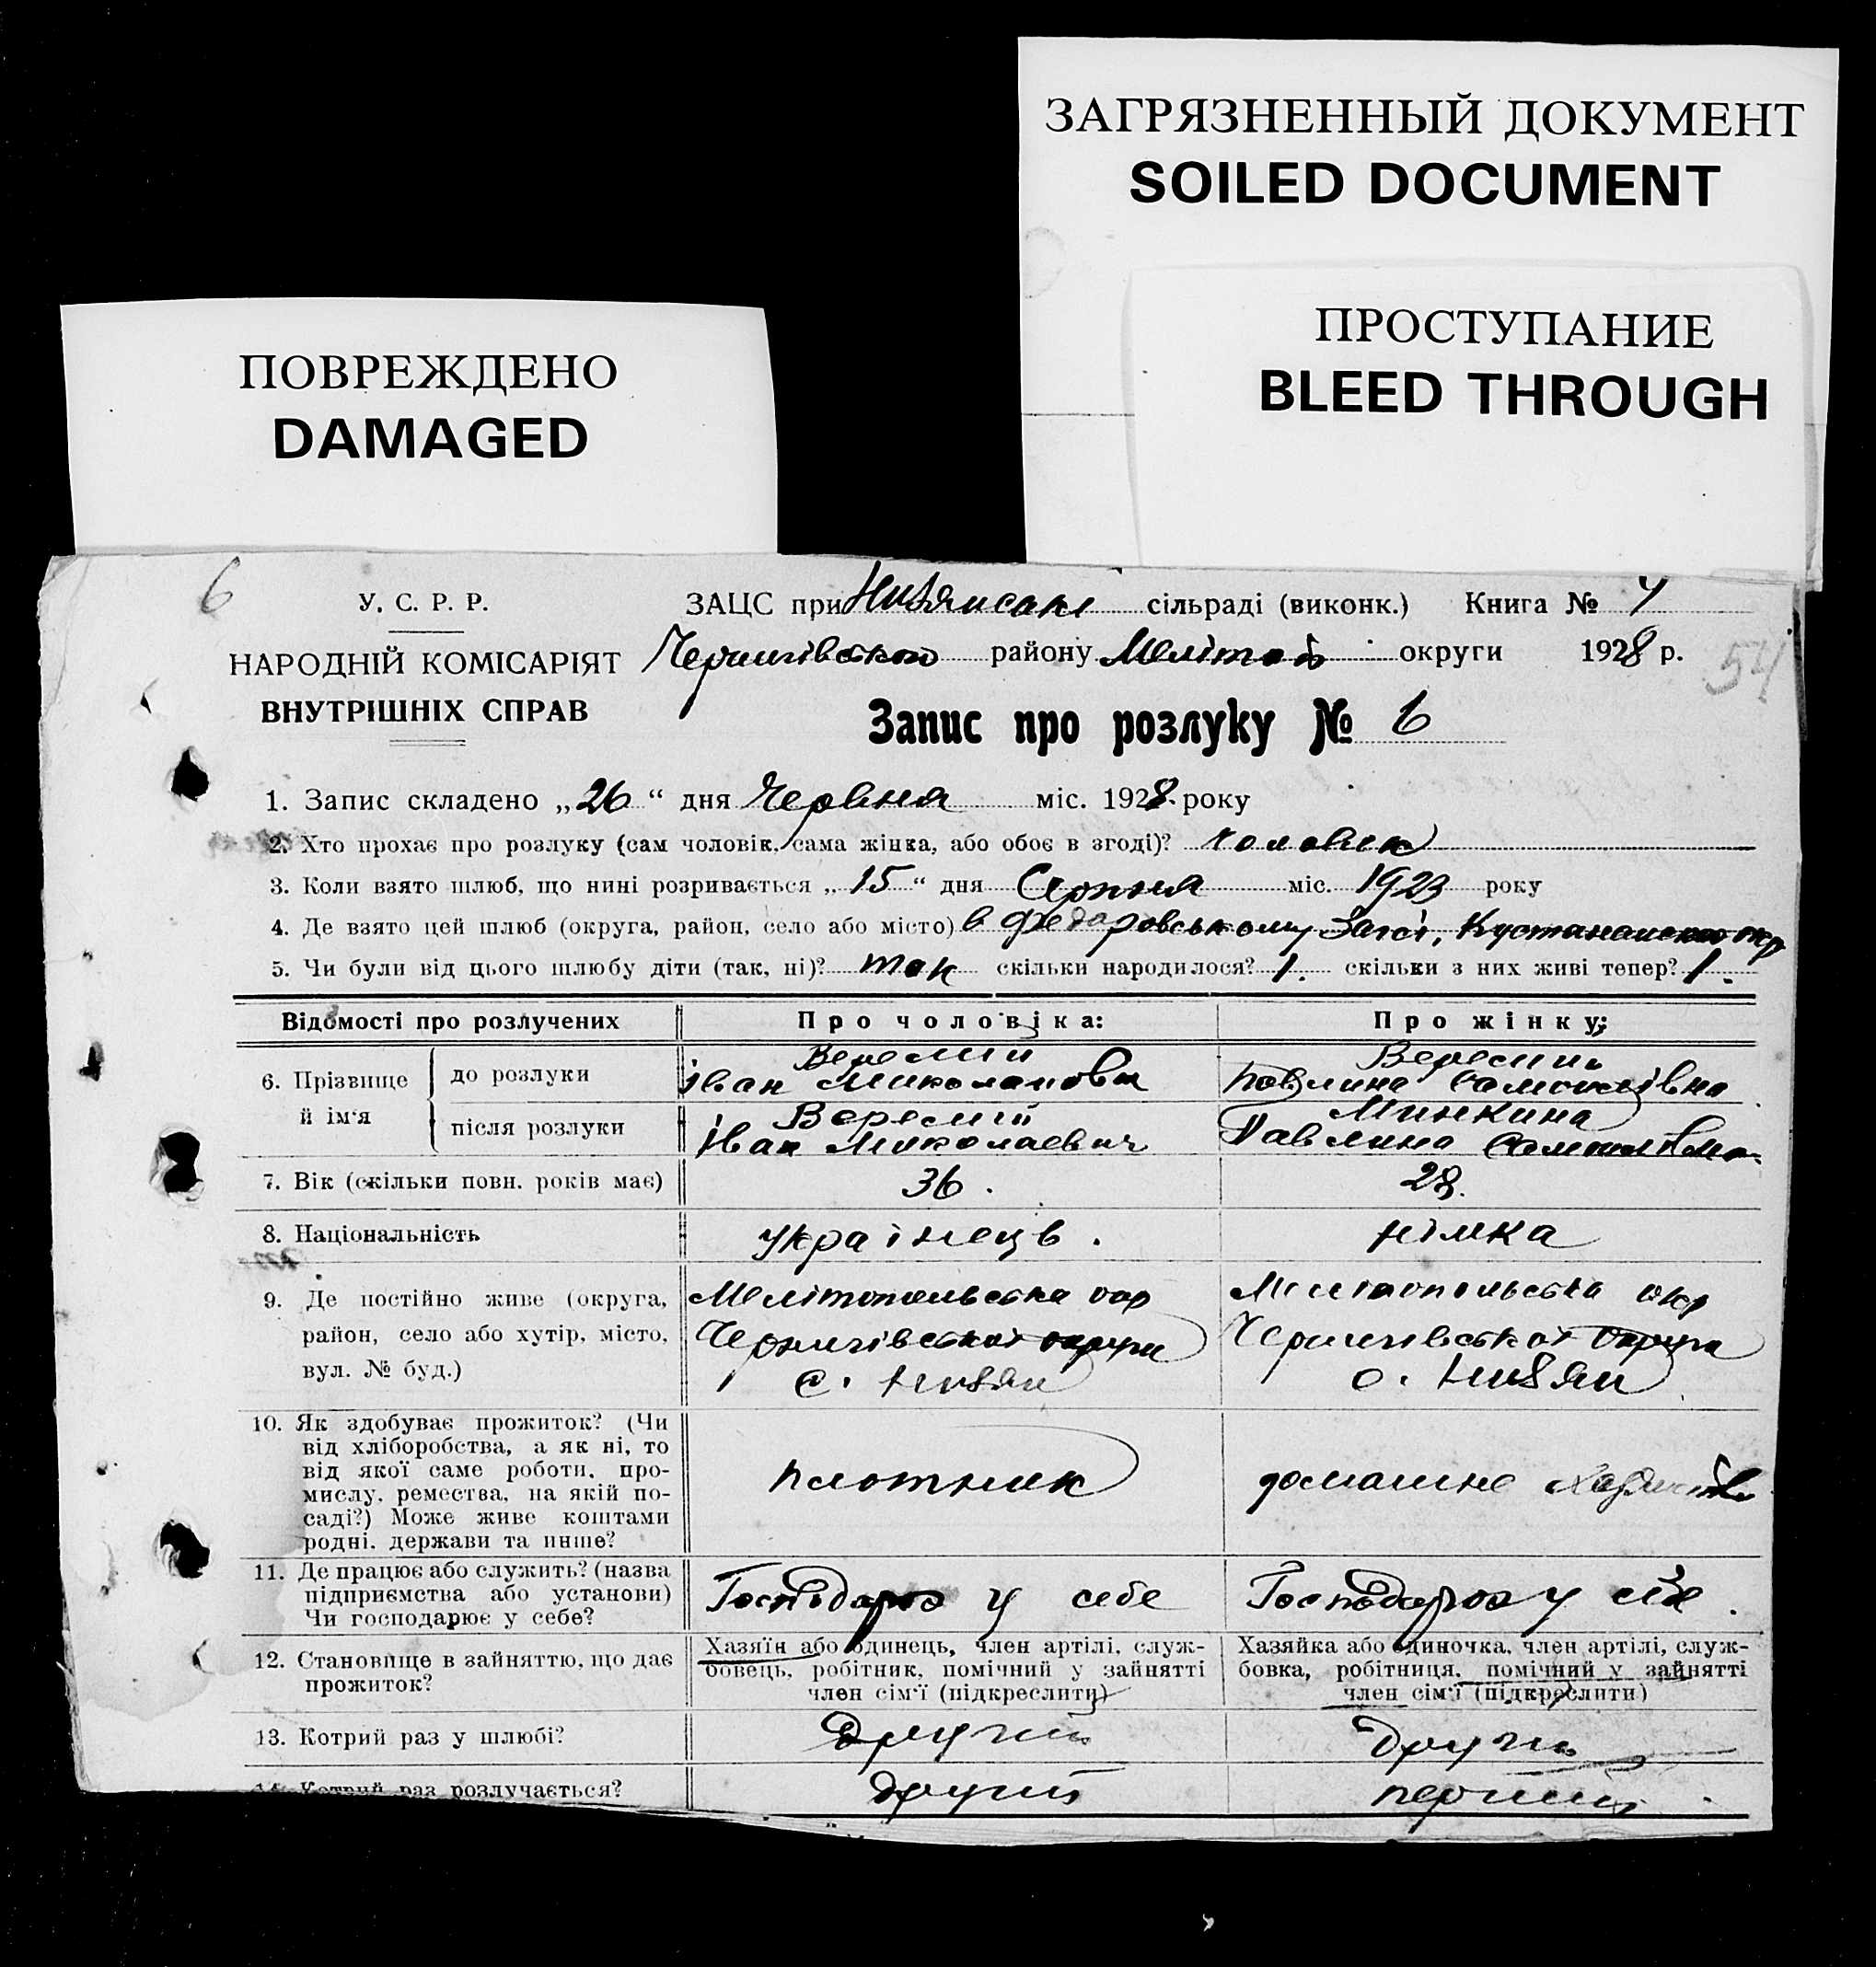 ЗАГРЯЗНЕННЫЙ ДОКУМЕНТ
SOILED DOCUMENT
ПРОСТУПАНИЕ
BLEED THROUGH
ПОВРЕЖДЕНО
DAMAGED
6
У. С. Р. Р.
НАРОДНІЙ КОМІСАРІЯТ
ВНУТРІШНІХ СПРАВ
ЗАЦС при сільраді (виконк.) Книга №
району округи 1928 р.
54
Запис про розлуку № 6
1. Запис складено „26“ дня Червня міс. 1928 року
2. Хто прохає про розлуку (сам чоловік, сама жінка, або обоє в згоді)? чоловик
3. Коли взято шлюб, що нині розривається „15“ дня Серпня міс. 1923 року
4. Де взято цей шлюб (округа, район, село або місто) в Федоровському Загсі,
5. Чи були від цього шлюбу діти (так, ні)? так скільки народилося? 1. скільки з них живі тепер? 1.
Відомості про розлучених
Про чоловіка:
Про жінку:
6. Прізвище й ім'я
до розлуки
Веремій
Іван
Веремій
Павлина
після розлуки
Веремій
Іван Миколаевич
Минкина
Павлина
7. Вік (скільки повн. років має)
36.
28.
8. Національність
українець.
німка
9. Де постійно живе (округа,
район, село або хутір, місто,
вул. № буд.)
Мелітопольська окр
Чернигівської округи
с.
Мелітопольська окр
Чернигівської округи
с.
10. Як здобуває прожиток? (Чи
від хліборобства, а як ні, то
від якої саме роботи, про-
мислу, ремества, на якій по-
саді?) Може живе коштами
родні, держави та инше?
плотник
домашне
11. Де працює або служить? (назва
підприємства або установи)
Чи господарює у себе?
Господарює у себе
Господарює у себе.
12. Становище в зайняттю, що дає
прожиток?
Хазяїн або одинець, член артілі, служ-
бовець, робітник, помічний у зайнятті
член сім'ї (підкреслити)
Хазяйка або одиночка, член артілі, служ-
бовка, робітниця, помічний у зайнятті
член сім'ї (підкреслити)
13. Котрий раз у шлюбі?
другий
другий
14. Котрий раз розлучається?
другий
перший